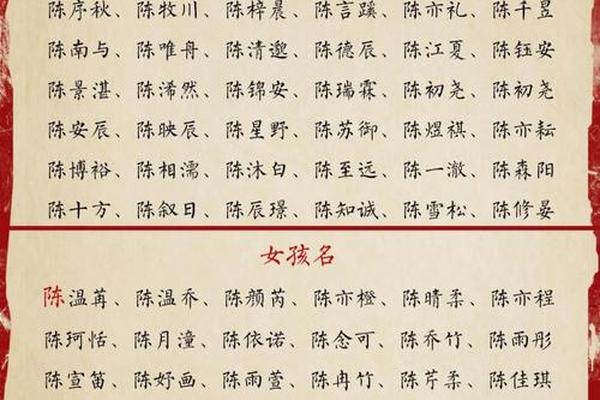 陈序秋、陈牧川、陈梓晨、陈言蹊、陈亦礼、陈千昱
陈南与、陈唯舟、陈清邈、陈德辰、陈江夏、陈钰安
陈景湛、陈浠然、陈锦安、陈瑞霖、陈初尧、陈初尧
陈安辰、陈映辰、陈星野、陈苏御、陈煜祺、陈亦耘
陈博裕、陈相濡、陈沐白、陈至远、陈一澈、陈森阳
陈十方、陈叙日、陈辰璟、陈知诚、陈雪松、陈修晏
女孩名
陈温苒、陈温乔、陈颜芮、陈亦橙、陈晴柔、陈亦程
陈珂恬、陈月潼、陈依诺、陈念可、陈乔竹、陈雨彤
陈宣笛、陈妤画、陈雨萱、陈冉竹、陈芹柔、陈佳琪